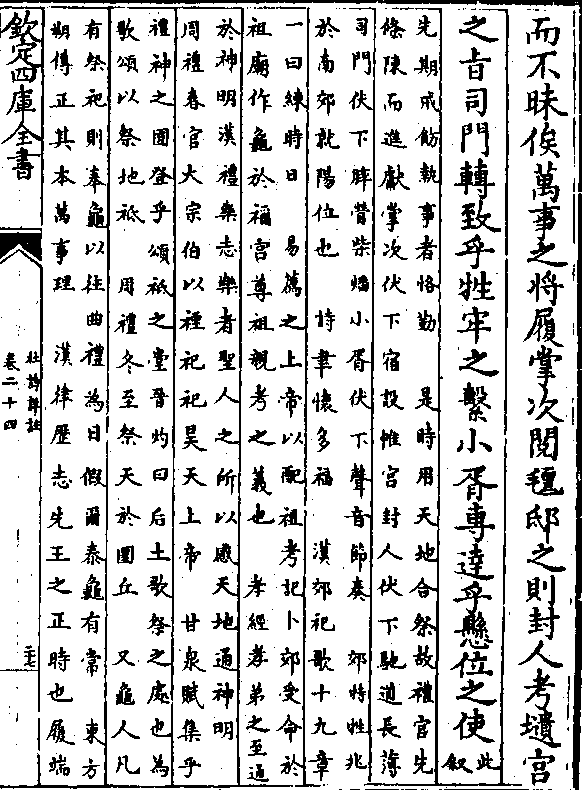 而不昧俟萬事之將履掌次閱氊邸之則封人考壝宮
之旨司門轉致乎牲牢之繫小胥專達乎懸位之使此叙
先期戒飭執事者恪勤　是時用天地合祭故禮官先
條陳而進獻掌次伏下宿設帷宮封人伏下馳道長薄
司門伏下牂膋柴燔小胥伏下聲音節奏　郊特牲兆
於南郊就陽位也　詩聿懷多福　漢郊祀歌十九章
一曰練時日　易薦之上帝以配祖考記卜郊受命於
祖廟作龜於禰宮尊祖親考之義也　孝經孝弟之至通
於神明漢禮樂志樂者聖人之所以感天地通神明
周禮春官大宗伯以禋祀祀昊天上帝　甘泉賦集乎
禮神之囿登乎頌祇之堂晉灼曰后土歌祭之處也為
歌頌以祭地祇　周禮冬至祭天於圜丘　又龜人凡
有祭祀則奉龜以往曲禮為日假爾泰龜有常　東方
朔傳正其本萬事理　漢律歷志先王之正時也履端
欽定四庫全書
杜詩詳註
卷二十四